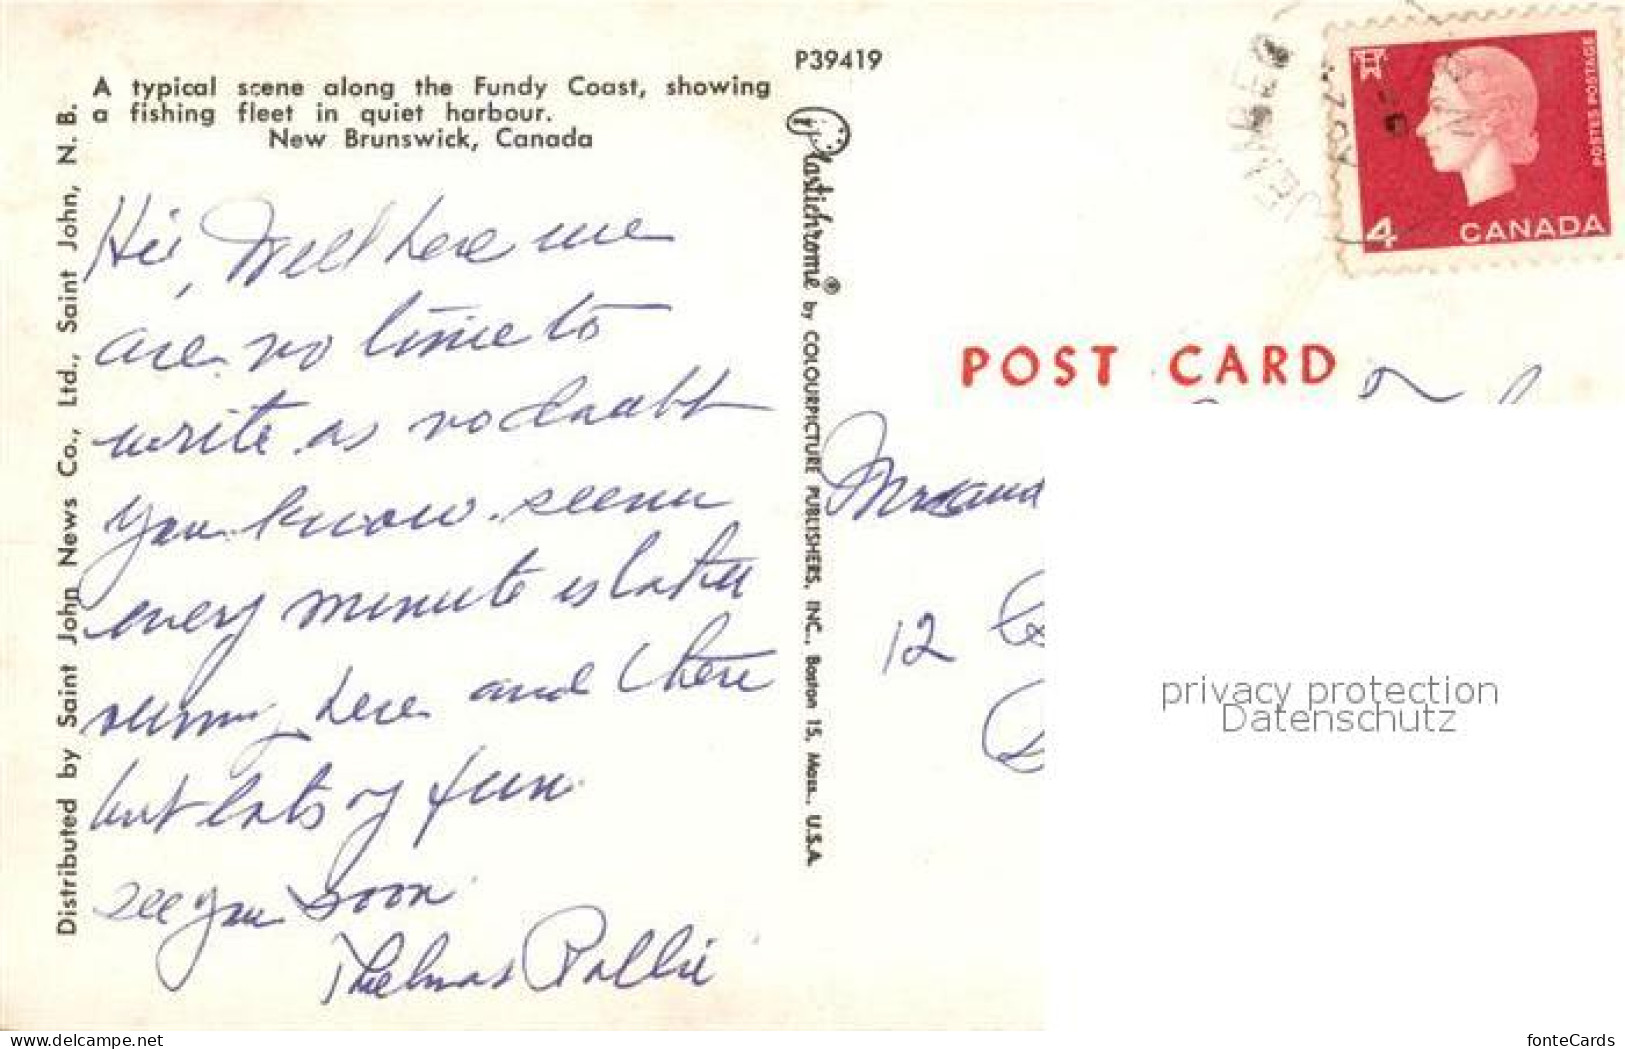 P39419
A typical scene along the Fundy Coast, showing
a fishing fleet in quiet harbour.
New Brunswick, Canada
Distributed by Saint John News Co., Ltd., Saint John, N. B.
Hi, Well here we
are no time to
write as no doubt
you know. seems
every minute is
running here and there
but lots of fun
see you soon
Thelma & Rollie
Plastichrome® by COLOURPICTURE PUBLISHERS, INC., Boston 15, Mass., U.S.A.
JEMSEG
4 CANADA
POSTES POSTAGE
POST CARD
12
privacy protection
Datenschutz
www.delcampe.net
fonteCards